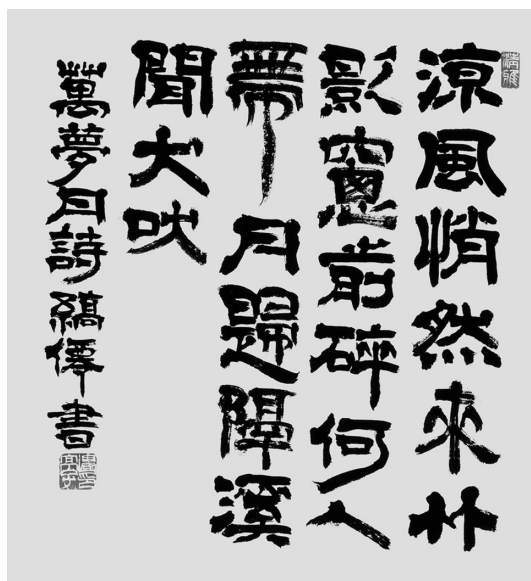 涼風悄然來竹
影窻前碎何人
帶月歸隔溪
聞犬吠
萬夢月詩縞僊書